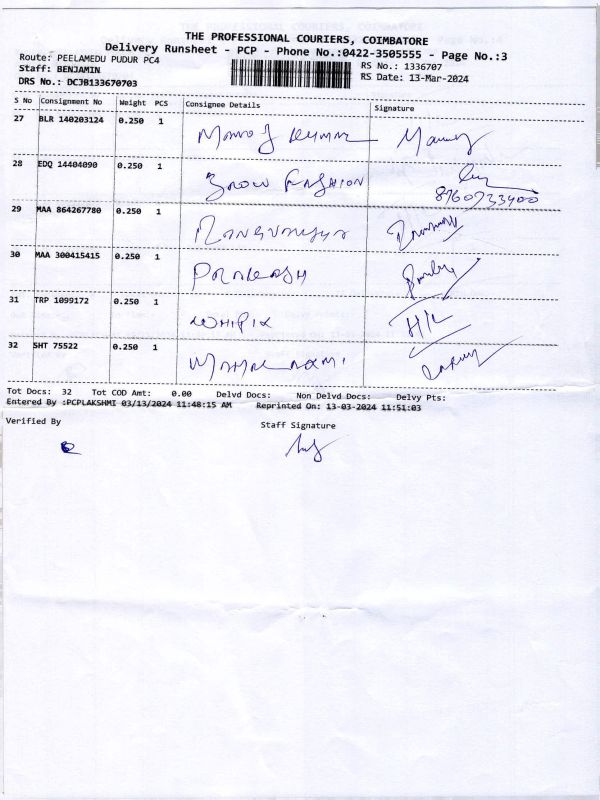 THE PROFESSIONAL COURIERS, COIMBATORE
Delivery Runsheet - PCP - Phone No.:0422-3505555 - Page No.:3
Route: PEELAMEDU PUDUR PC4
Staff: BENJAMIN
DRS No.: DCJB133670703
RS No.: 1336707
RS Date: 13-Mar-2024
S No Consignment No Weight PCS Consignee Details Signature
27 BLR 140203124 0.250 1 Mano J Kumar
28 EDQ 14404090 0.250 1 Grow Fashion
8760733400
29 MAA 864267780 0.250 1
30 MAA 300415415 0.250 1 PRAKASH
31 TRP 1099172 0.250 1 H/L
32 SHT 75522 0.250 1
Tot Docs: 32 Tot COD Amt: 0.00 Delvd Docs: Non Delvd Docs: Delvy Pts:
Entered By :PCPLAKSHMI 03/13/2024 11:48:15 AM Reprinted On: 13-03-2024 11:51:03
Verified By
Staff Signature